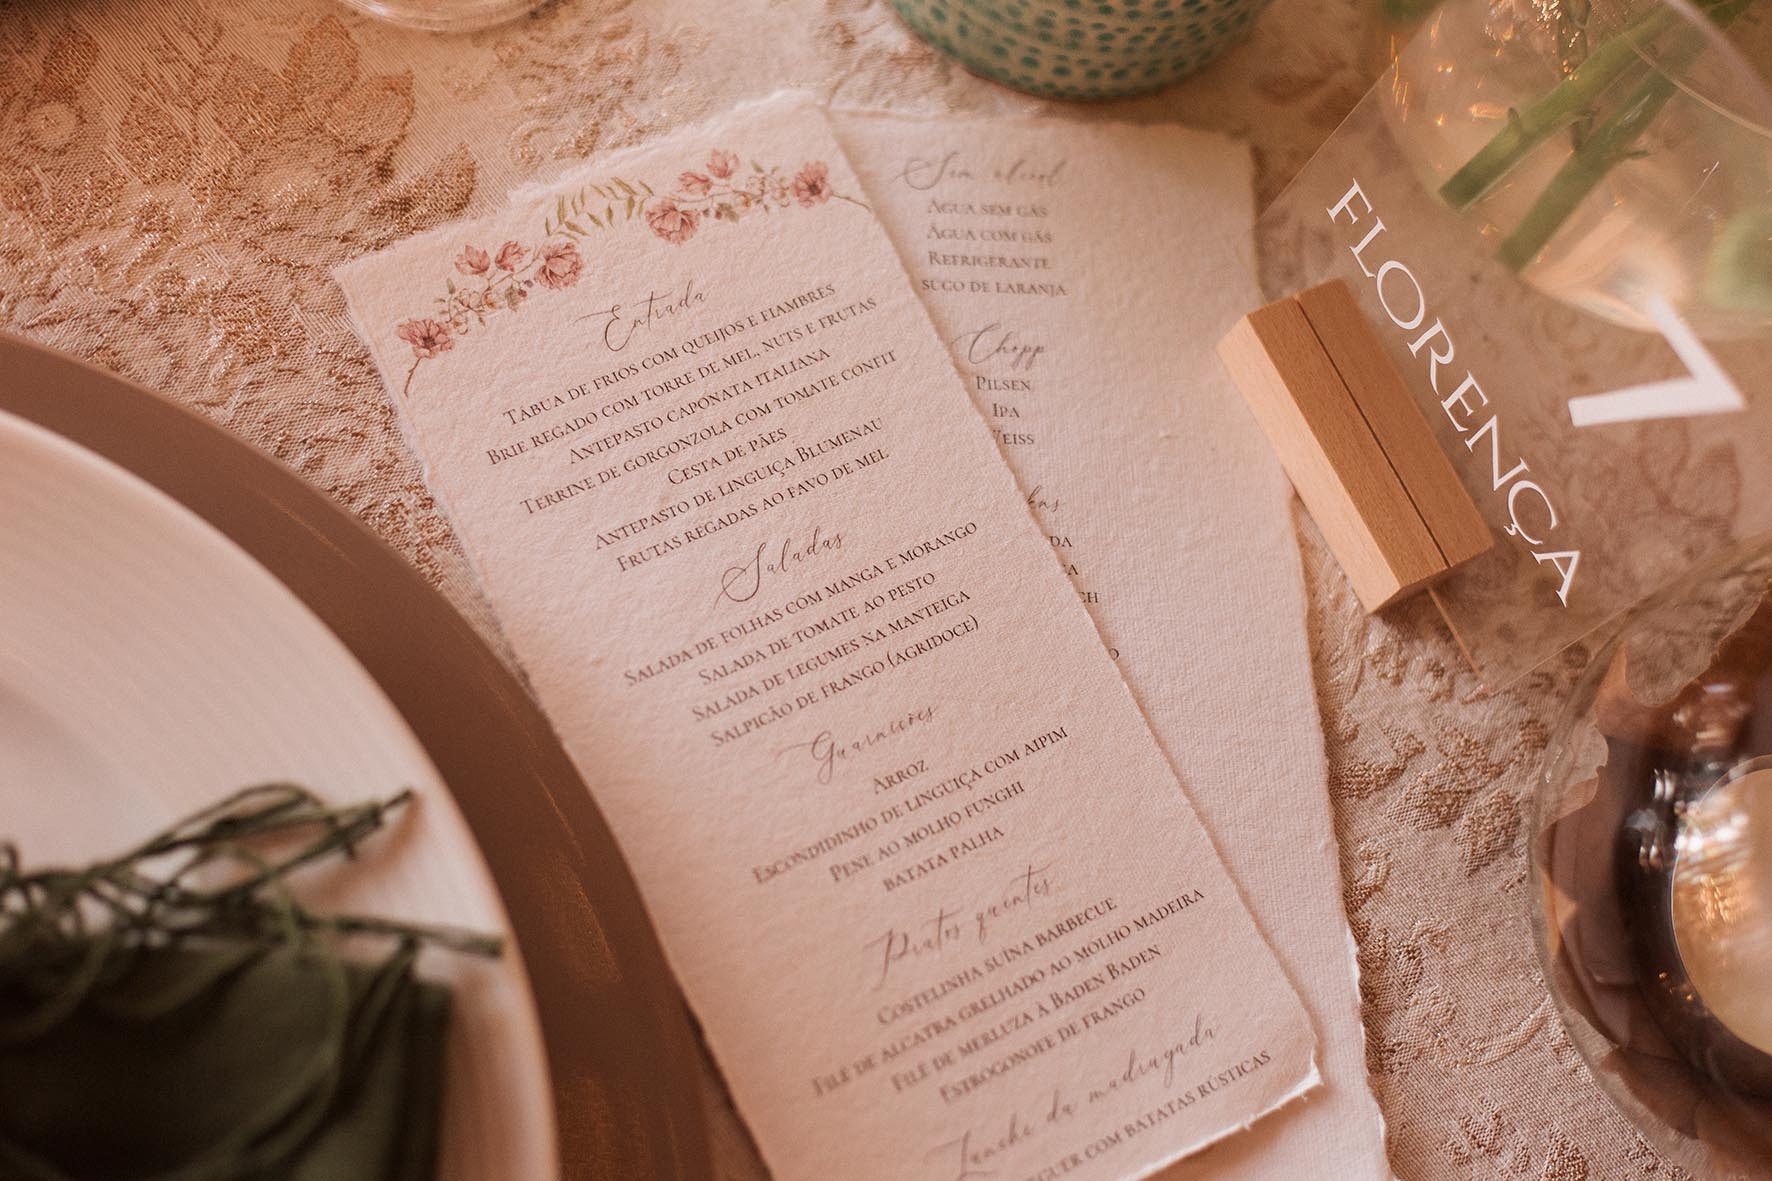 Entrada
Tábua de frios com queijos e fiambres
Brie regado com torre de mel, nuts e frutas
Antepasto caponata italiana
Terrine de gorgonzola com tomate confit
Cesta de pães
Antepasto de linguiça Blumenau
Frutas regadas ao favo de mel
Saladas
Salada de folhas com manga e morango
Salada de tomate ao pesto
Salada de legumes na manteiga
Salpicão de frango (agridoce)
Guarnições
Arroz
Escondidinho de linguiça com aipim
Pene ao molho funghi
batata palha
Pratos quentes
Costelinha suína barbecue
Filé de alcatra grelhado ao molho madeira
Filé de merluza à Baden Baden
Estrogonofe de frango
Lanche da madrugada
com batatas rústicas
Sem álcool
Água sem gás
Água com gás
Refrigerante
suco de laranja
Chopp
Pilsen
Ipa
FLORENÇA
7